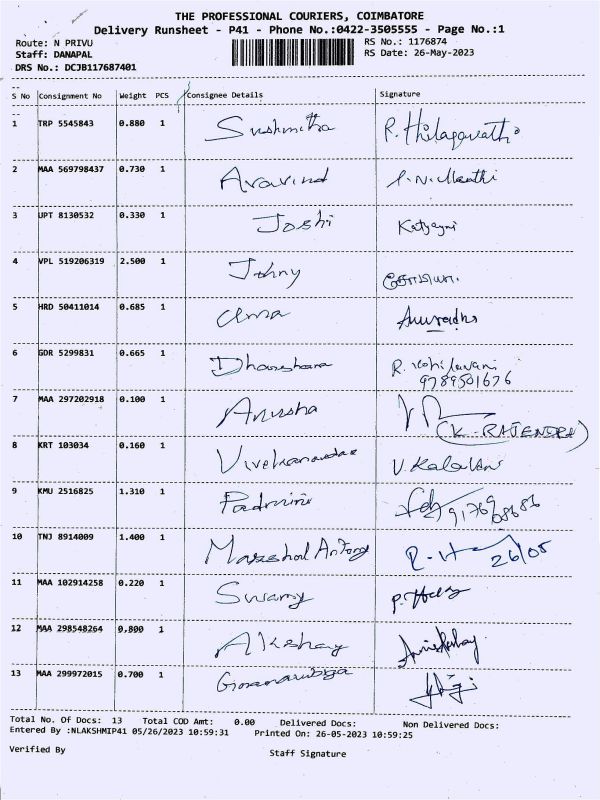 THE PROFESSIONAL COURIERS, COIMBATORE
Delivery Runsheet - P41 - Phone No.:0422-3505555 - Page No.:1
Route: N PRIVU RS No.: 1176874
Staff: DANAPAL RS Date: 26-May-2023
DRS No.: DCJB117687401
S No Consignment No Weight PCS Consignee Details Signature
1 TRP 5545843 0.880 1 Sushmitha R. Thilagavathi
2 MAA 569798437 0.730 1 Aravind
3 UPT 8130532 0.330 1 Joshi Katyayni
4 VPL 519206319 2.500 1 Johny
5 HRD 50411014 0.685 1 Uma Anuradha
6 GDR 5299831 0.665 1 R. Kohilavani
9789501676
7 MAA 297202918 0.100 1 Anusha
(K. RAJENDRA)
8 KRT 103034 0.160 1 V. Kalaivani
9 KMU 2516825 1.310 1 Padmini
10 TNJ 8914009 1.400 1 Marshal Antony 26/05
11 MAA 102914258 0.220 1 Swamy
12 MAA 298548264 0.800 1 Akshay
13 MAA 299972015 0.700 1
Total No. Of Docs: 13 Total COD Amt: 0.00 Delivered Docs: Non Delivered Docs:
Entered By :NLAKSHMIP41 05/26/2023 10:59:31 Printed On: 26-05-2023 10:59:25
Verified By Staff Signature